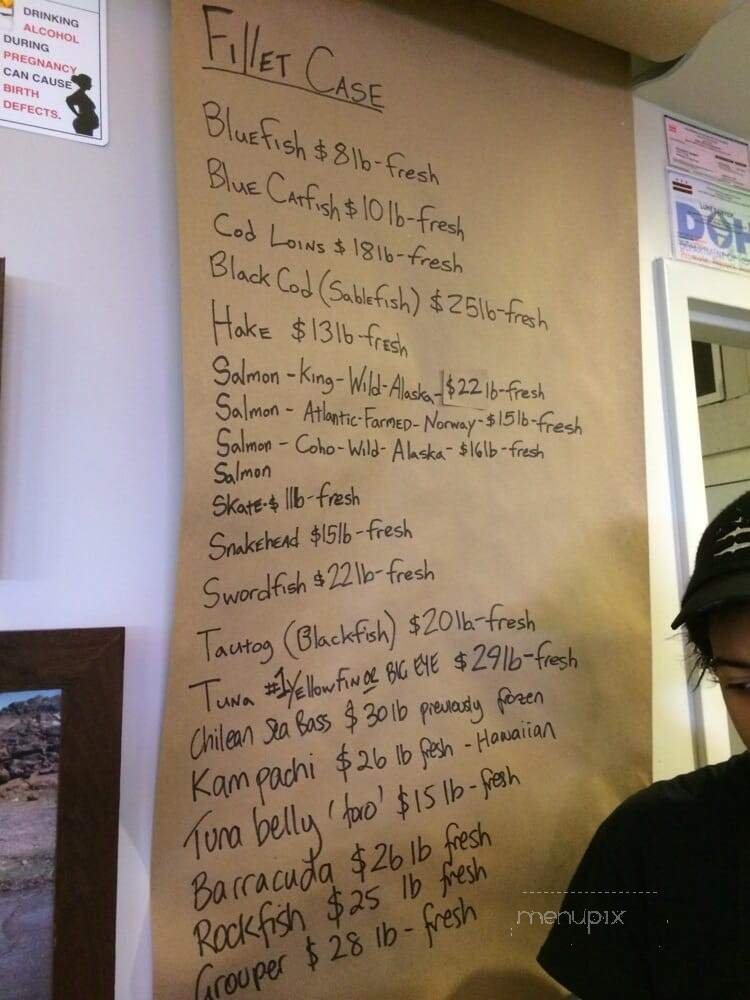 DRINKING
ALCOHOL
DURING
PREGNANCY
CAN CAUSE
BIRTH
DEFECTS.
FILLET CASE
BLUEFish $8lb-fresh
BLUE CATfish $10lb-fresh
Cod LOINS $18lb-fresh
Black Cod (Sablefish) $25lb-fresh
HAKE $13lb-frEsh
Salmon-King-Wild-Alaska-$22lb-fresh
Salmon - Atlantic-Farmed-Norway-$15lb-fresh
Salmon - Coho-Wild-Alaska-$16lb-fresh
Salmon
Skate-$11lb-fresh
SnakeheAd $15lb-fresh
Swordfish $22lb-fresh
Tautog (Blackfish) $20lb-fresh
TUNA #1 YEllowFiN OR BIG EYE $29lb-fresh
Chilean Sea Bass $30lb previously frozen
Kampachi $26 lb fresh - Hawaiian
Tuna belly 'toro' $15 lb-fresh
Barracuda $26 lb fresh
Rockfish $25 lb fresh
Grouper $28 lb-fresh
DOH
menupix